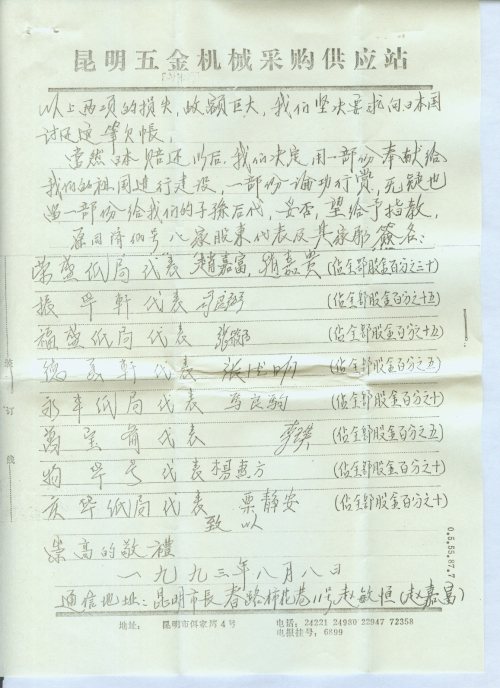 昆明五金机械采购供应站
以上两项的损失，数额巨大，我们坚决要求向日本国
讨还这笔欠帐，
当然日本赔还以后，我们决定用一部份奉献给
我们的祖国进行建设，一部份论功行赏，无疑也
留一部份给我们的子孙后代，妥否，望给予指教，
原同济仙号八家股东代表及其家邪签名：
荣盛纸局代表 赵嘉富，赵嘉贵 (佔全部股金百分之二十)
振华軒代表 (佔全部股金百分之十五)
福盛纸局代表 (佔全部股金百分之十五)
德美軒代表 张 明 (佔全部股金百分之五)
永丰纸局代表 马良驹 (佔全部股金百分之十)
萬宝斋代表 李 (佔全部股金百分之五)
均华号代表 杨惠方 (佔全部股金百分之十)
庆华纸局代表 栗静安 (佔全部股金百分之十)
致以
崇高的敬禮
一九九三年八月八日
通信地址：昆明市長春路柿花巷11号 赵敏恒（赵嘉富）
地址： 昆明市佴家湾4号 电话：24221 24980 22947 72358
电报挂号：6899
装订线
0.6.55.87.7